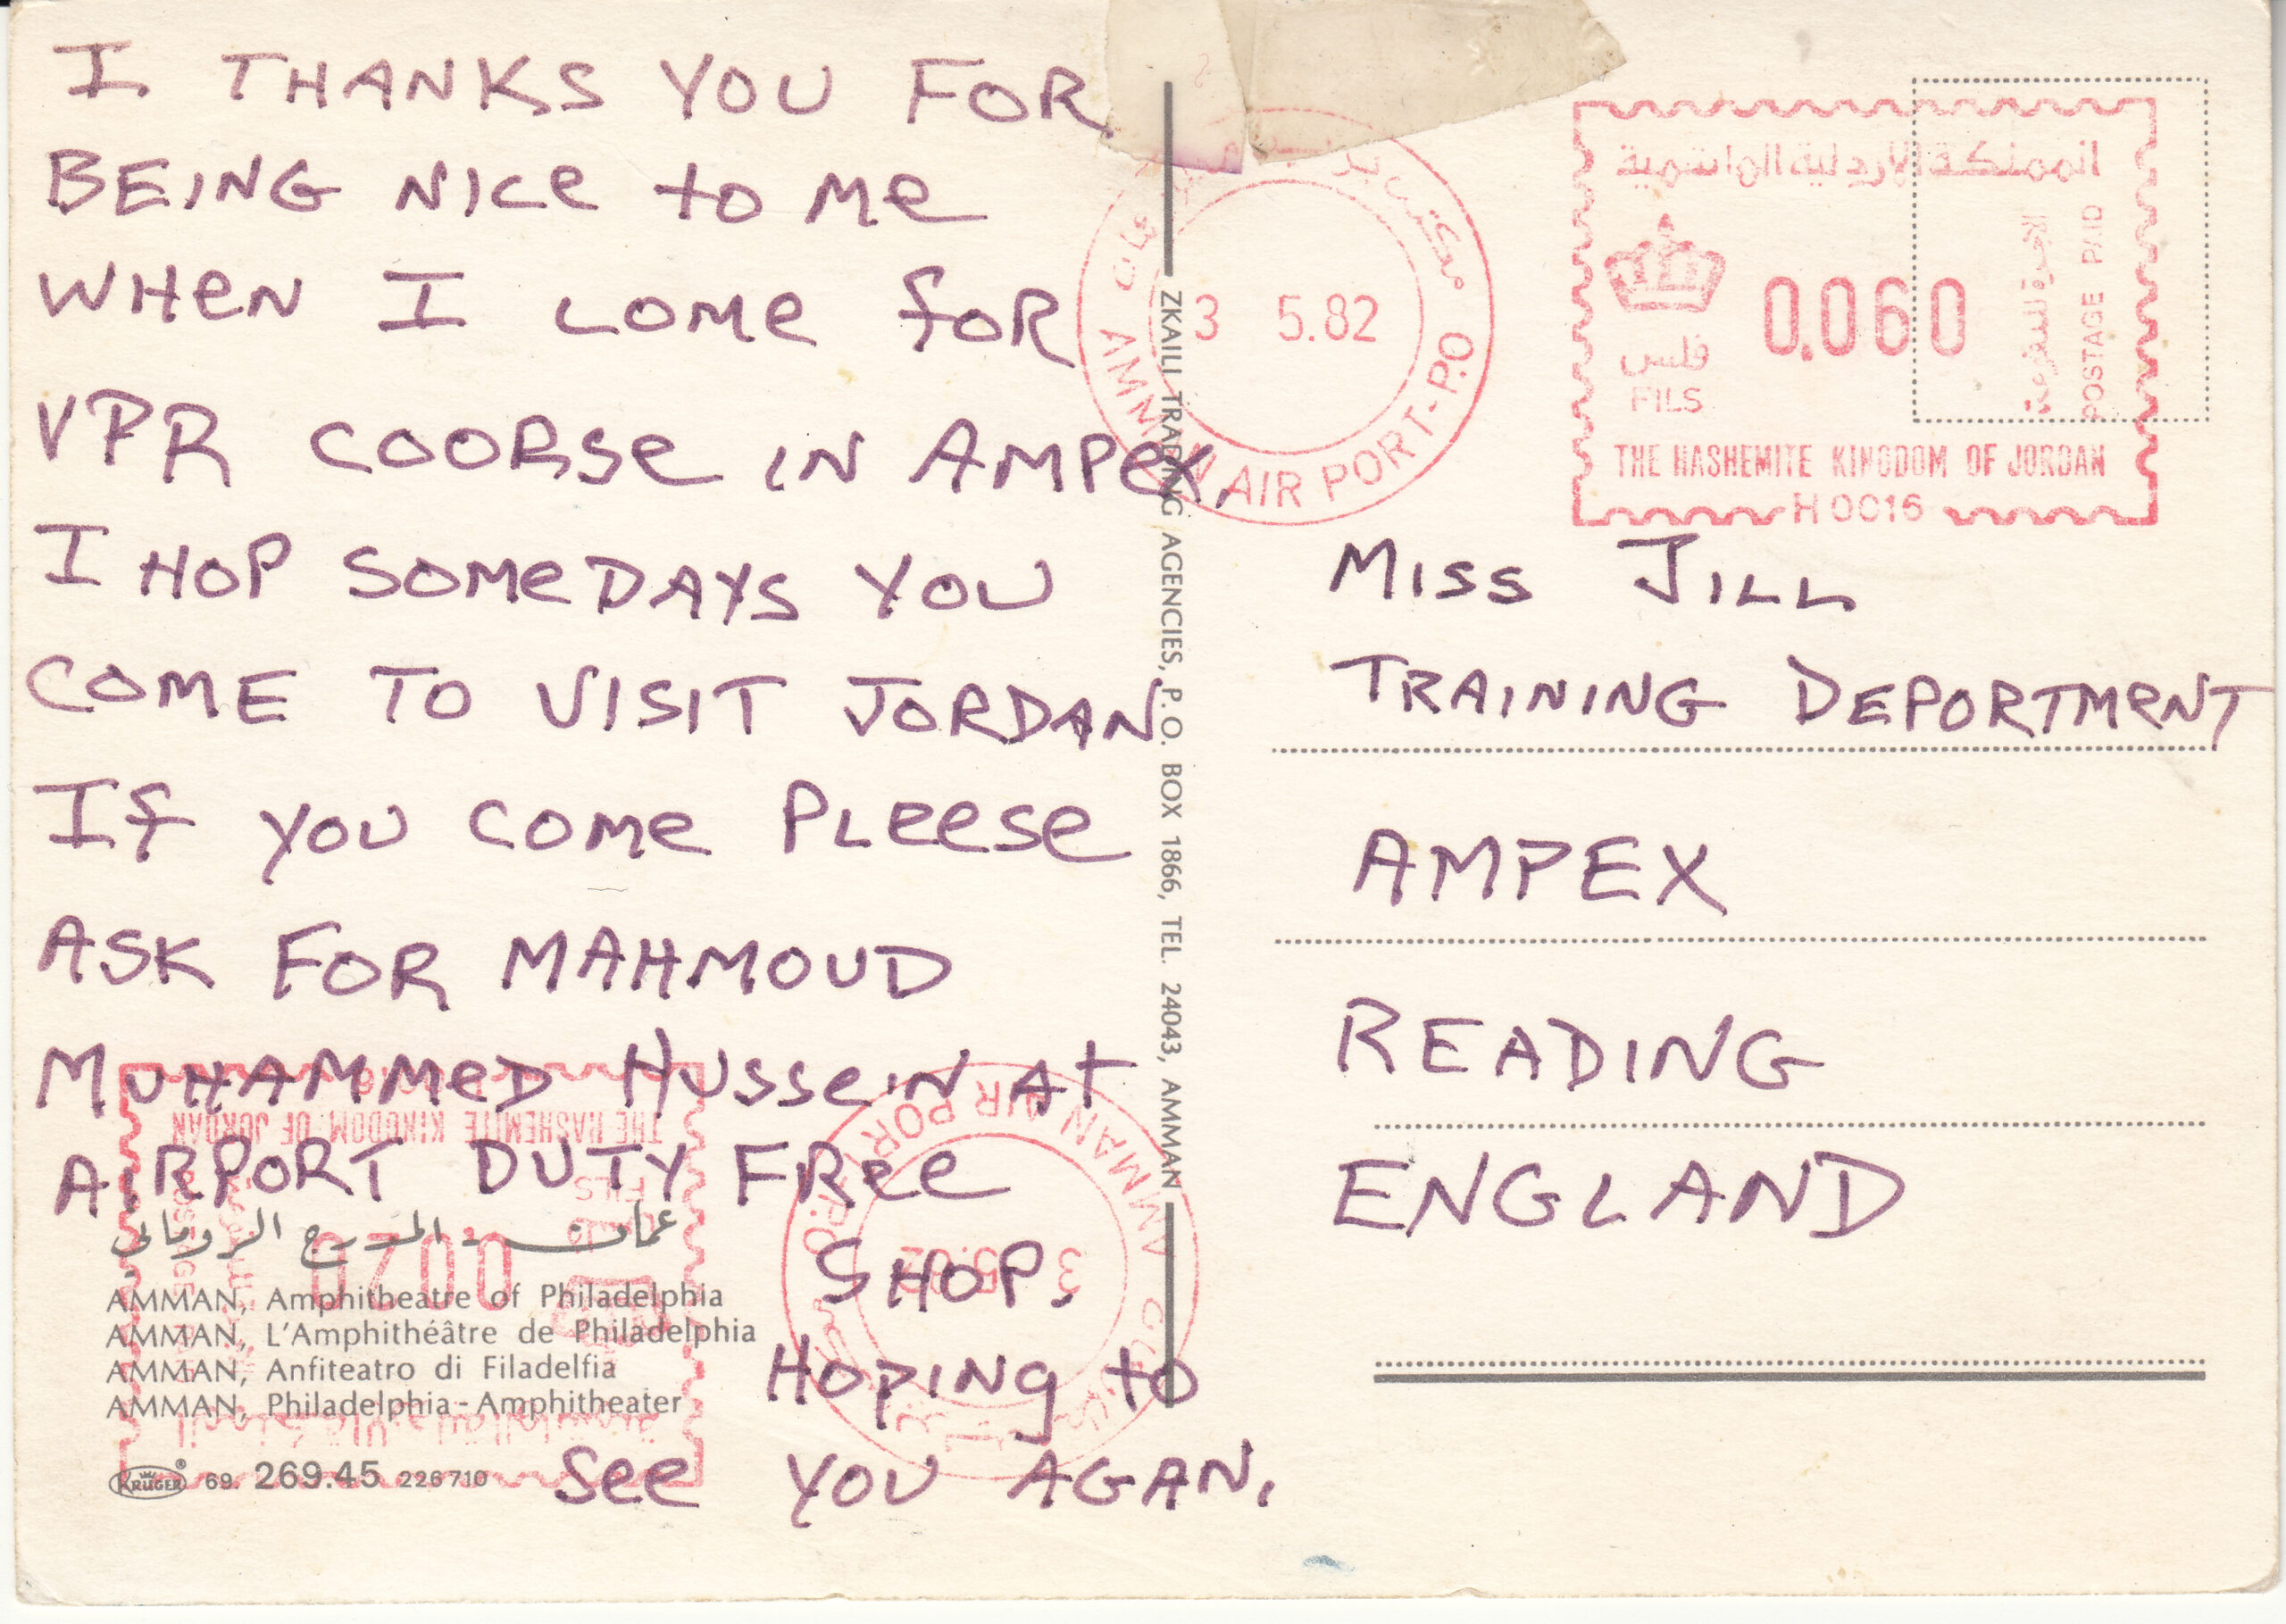 I THANKS YOU FOR
BEING NICe to Me
WHeN I COMe foR
VPR COORSe IN AMPeX.
I HOP SOMeDAYS YOU
COME TO VISIT JORDAN.
If YOU COMe PLeeSe
ASK FOR MAHMOUD
MUHAMMeD HUSSeiN At
AiRPORT DUTY FRee
SHOP.
HOPING to
See YOU AGAN.
عمان - المدرج الروماني
AMMAN, Amphitheatre of Philadelphia
AMMAN, L'Amphithéâtre de Philadelphia
AMMAN, Anfiteatro di Filadelfia
AMMAN, Philadelphia-Amphitheater
KRÜGER® 69. 269.45 226710
ZKAILI TRADING AGENCIES, P.O. BOX 1866, TEL. 24043, AMMAN
3 5.82
AMMAN AIR PORT-P.O
المملكة الاردنية الهاشمية
0.060
فلس
FILS
POSTAGE PAID
THE HASHEMITE KINGDOM OF JORDAN
H 0016
MISS JILL
TRAINING DEPORTMeNT
AMPEX
READING
ENGLAND
THE HASHEMITE KINGDOM OF JORDAN
FILS
POSTAGE
AMMAN AIR PORT-P.O
3 5.82